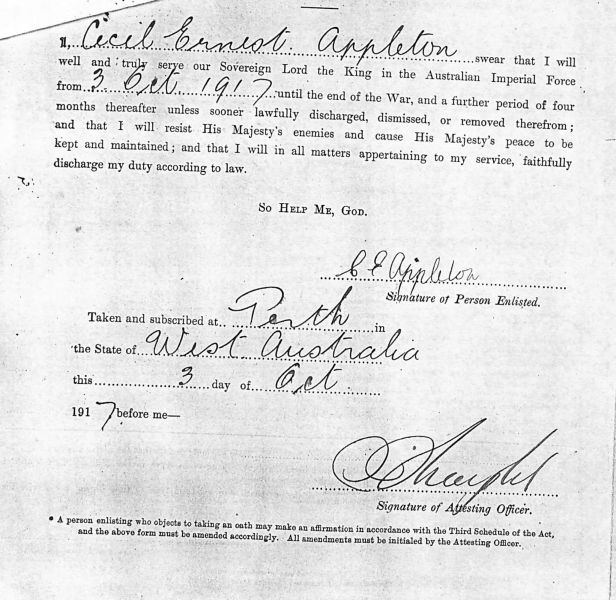 I, Cecil Ernest Appleton swear that I will
well and truly serve our Sovereign Lord the King in the Australian Imperial Force
from 3 Oct 1917 until the end of the War, and a further period of four
months thereafter unless sooner lawfully discharged, dismissed, or removed therefrom;
and that I will resist His Majesty's enemies and cause His Majesty's peace to be
kept and maintained; and that I will in all matters appertaining to my service, faithfully
discharge my duty according to law.
So Help Me, God.
C E Appleton
Signature of Person Enlisted.
Taken and subscribed at Perth in
the State of West Australia
this 3 day of Oct.
1917 before me—
Signature of Attesting Officer.
* A person enlisting who objects to taking an oath may make an affirmation in accordance with the Third Schedule of the Act,
and the above form must be amended accordingly. All amendments must be initialed by the Attesting Officer.